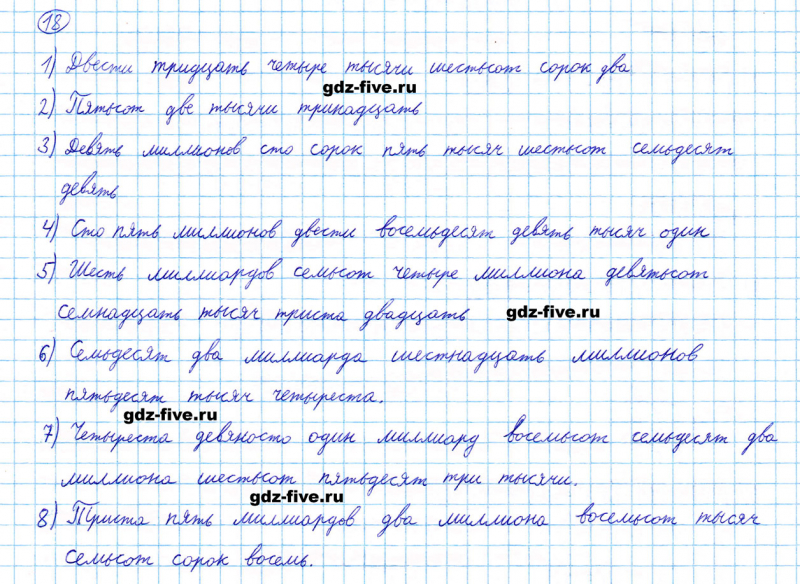 18
1) Двести тридцать четыре тысячи шестьсот сорок два
gdz-five.ru
2) Пятьсот две тысячи тринадцать
3) Девять миллионов сто сорок пять тысяч шестьсот семьдесят
девять
4) Сто пять миллионов двести восемьдесят девять тысяч один
5) Шесть миллиардов семьсот четыре миллиона девятьсот
семнадцать тысяч триста двадцать
gdz-five.ru
6) Семьдесят два миллиарда шестнадцать миллионов
пятьдесят тысяч четыреста.
gdz-five.ru
7) Четыреста девяносто один миллиард восемьсот семьдесят два
миллиона шестьсот пятьдесят три тысячи.
gdz-five.ru
8) Триста пять миллиардов два миллиона восемьсот тысяч
семьсот сорок восемь.